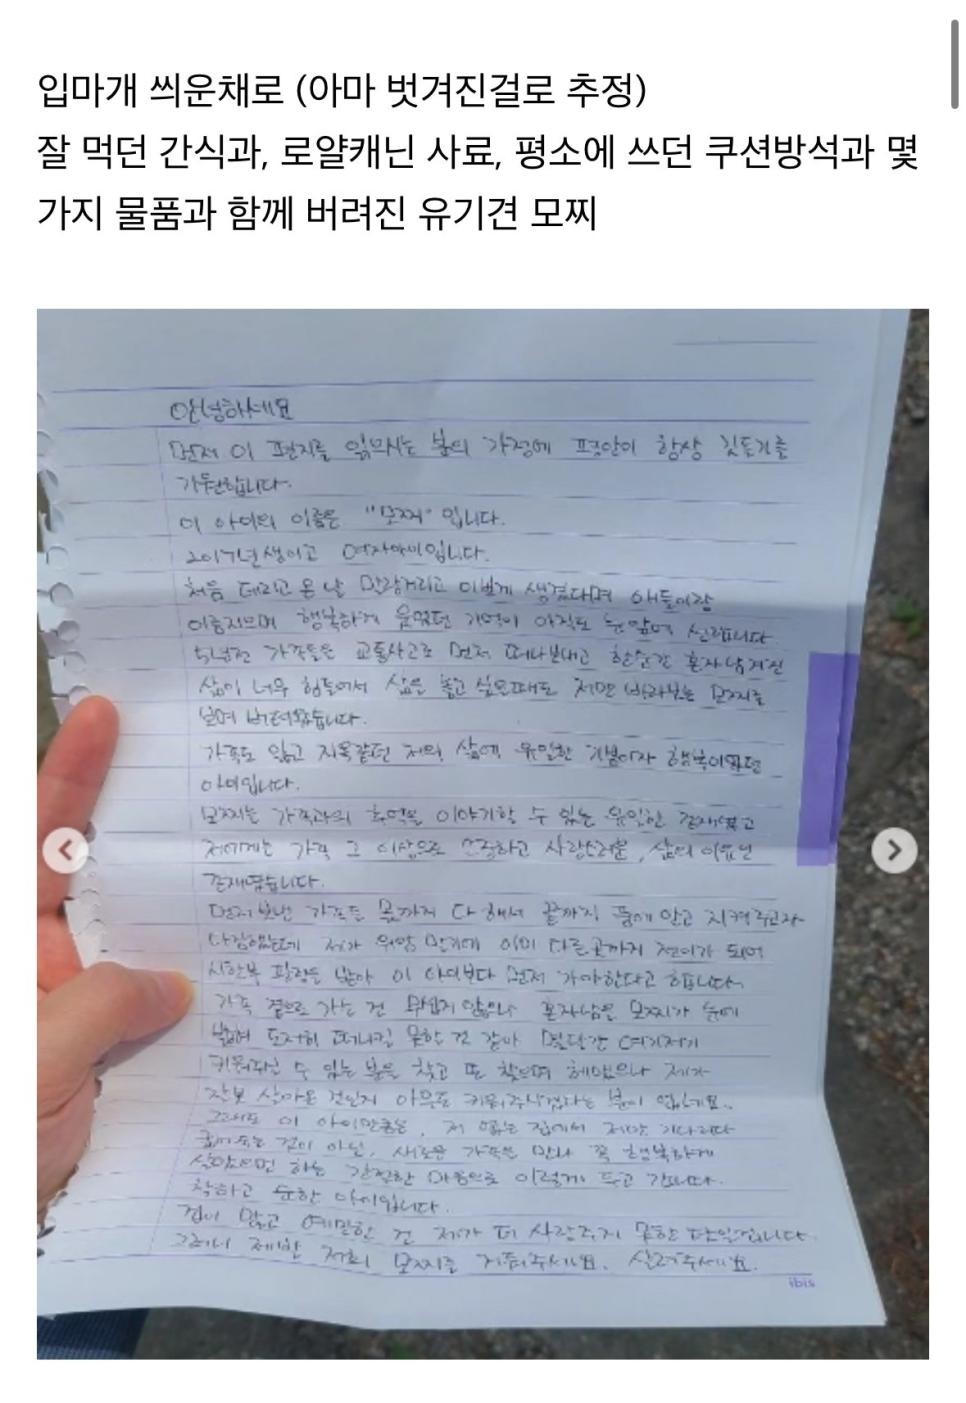 입마개 씌운채로 (아마 벗겨진걸로 추정)
잘 먹던 간식과, 로얄캐닌 사료, 평소에 쓰던 쿠션방석과 몇
가지 물품과 함께 버려진 유기견 모찌
안녕하세요
먼저 이 편지를 읽으시는 분의 가정에 평안이 항상 깃들기를
기원합니다.
이 아이의 이름은 "모찌" 입니다.
2017년생이고 여자아이입니다.
처음 데리고 온 날 말랑거리고 이쁘게 생겼다며 애들이랑
이름지으며 행복하게 웃었던 기억이 아직도 눈앞에 선합니다
5년전 가족들을 교통사고로 먼저 떠나보내고 한순간 혼자남겨진
삶이 너무 힘들어서 삶을 놓고 싶을때도 저만 바라보는 모찌를
보며 버텨왔습니다.
가족도 잃고 지옥같던 저의 삶에 유일한 기쁨이자 행복이였던
아이입니다.
모찌는 가족과의 추억을 이야기할 수 있는 유일한 존재였고
저에게는 가족 그 이상으로 소중하고 사랑스러운, 삶의 이유인
존재였습니다.
먼저보낸 가족들 몫까지 다해서 끝까지 품에 안고 지켜주고자
다짐했는데 제가 위암 말기에 이미 다른곳까지 전이가 되어
시한부 판정을 받아 이 아이보다 먼저 가야한다고 합니다.
가족 곁으로 가는 건 무섭지 않으나 혼자남을 모찌가 눈에
밟혀 도저히 떠나질 못할 것 같아 몇달간 여기저기
키워주실 수 있는 분을 찾고 또 찾으며 헤맸으나 제가
잘못 살아온 것인지 아무도 키워주시겠다는 분이 없네요..
그래도 이 아이만큼은, 저 없는 집에서 저만 기다리다
굶어죽는 것이 아닌, 새로운 가족을 만나 꼭 행복하게
살았으면 하는 간절한 마음으로 이렇게 두고 갑니다.
착하고 순한 아이입니다.
겁이 많고 예민한 건 제가 더 사랑주지 못한 탓일겁니다
그러니 제발 저희 모찌를 거둬주세요. 살려주세요.
ibis